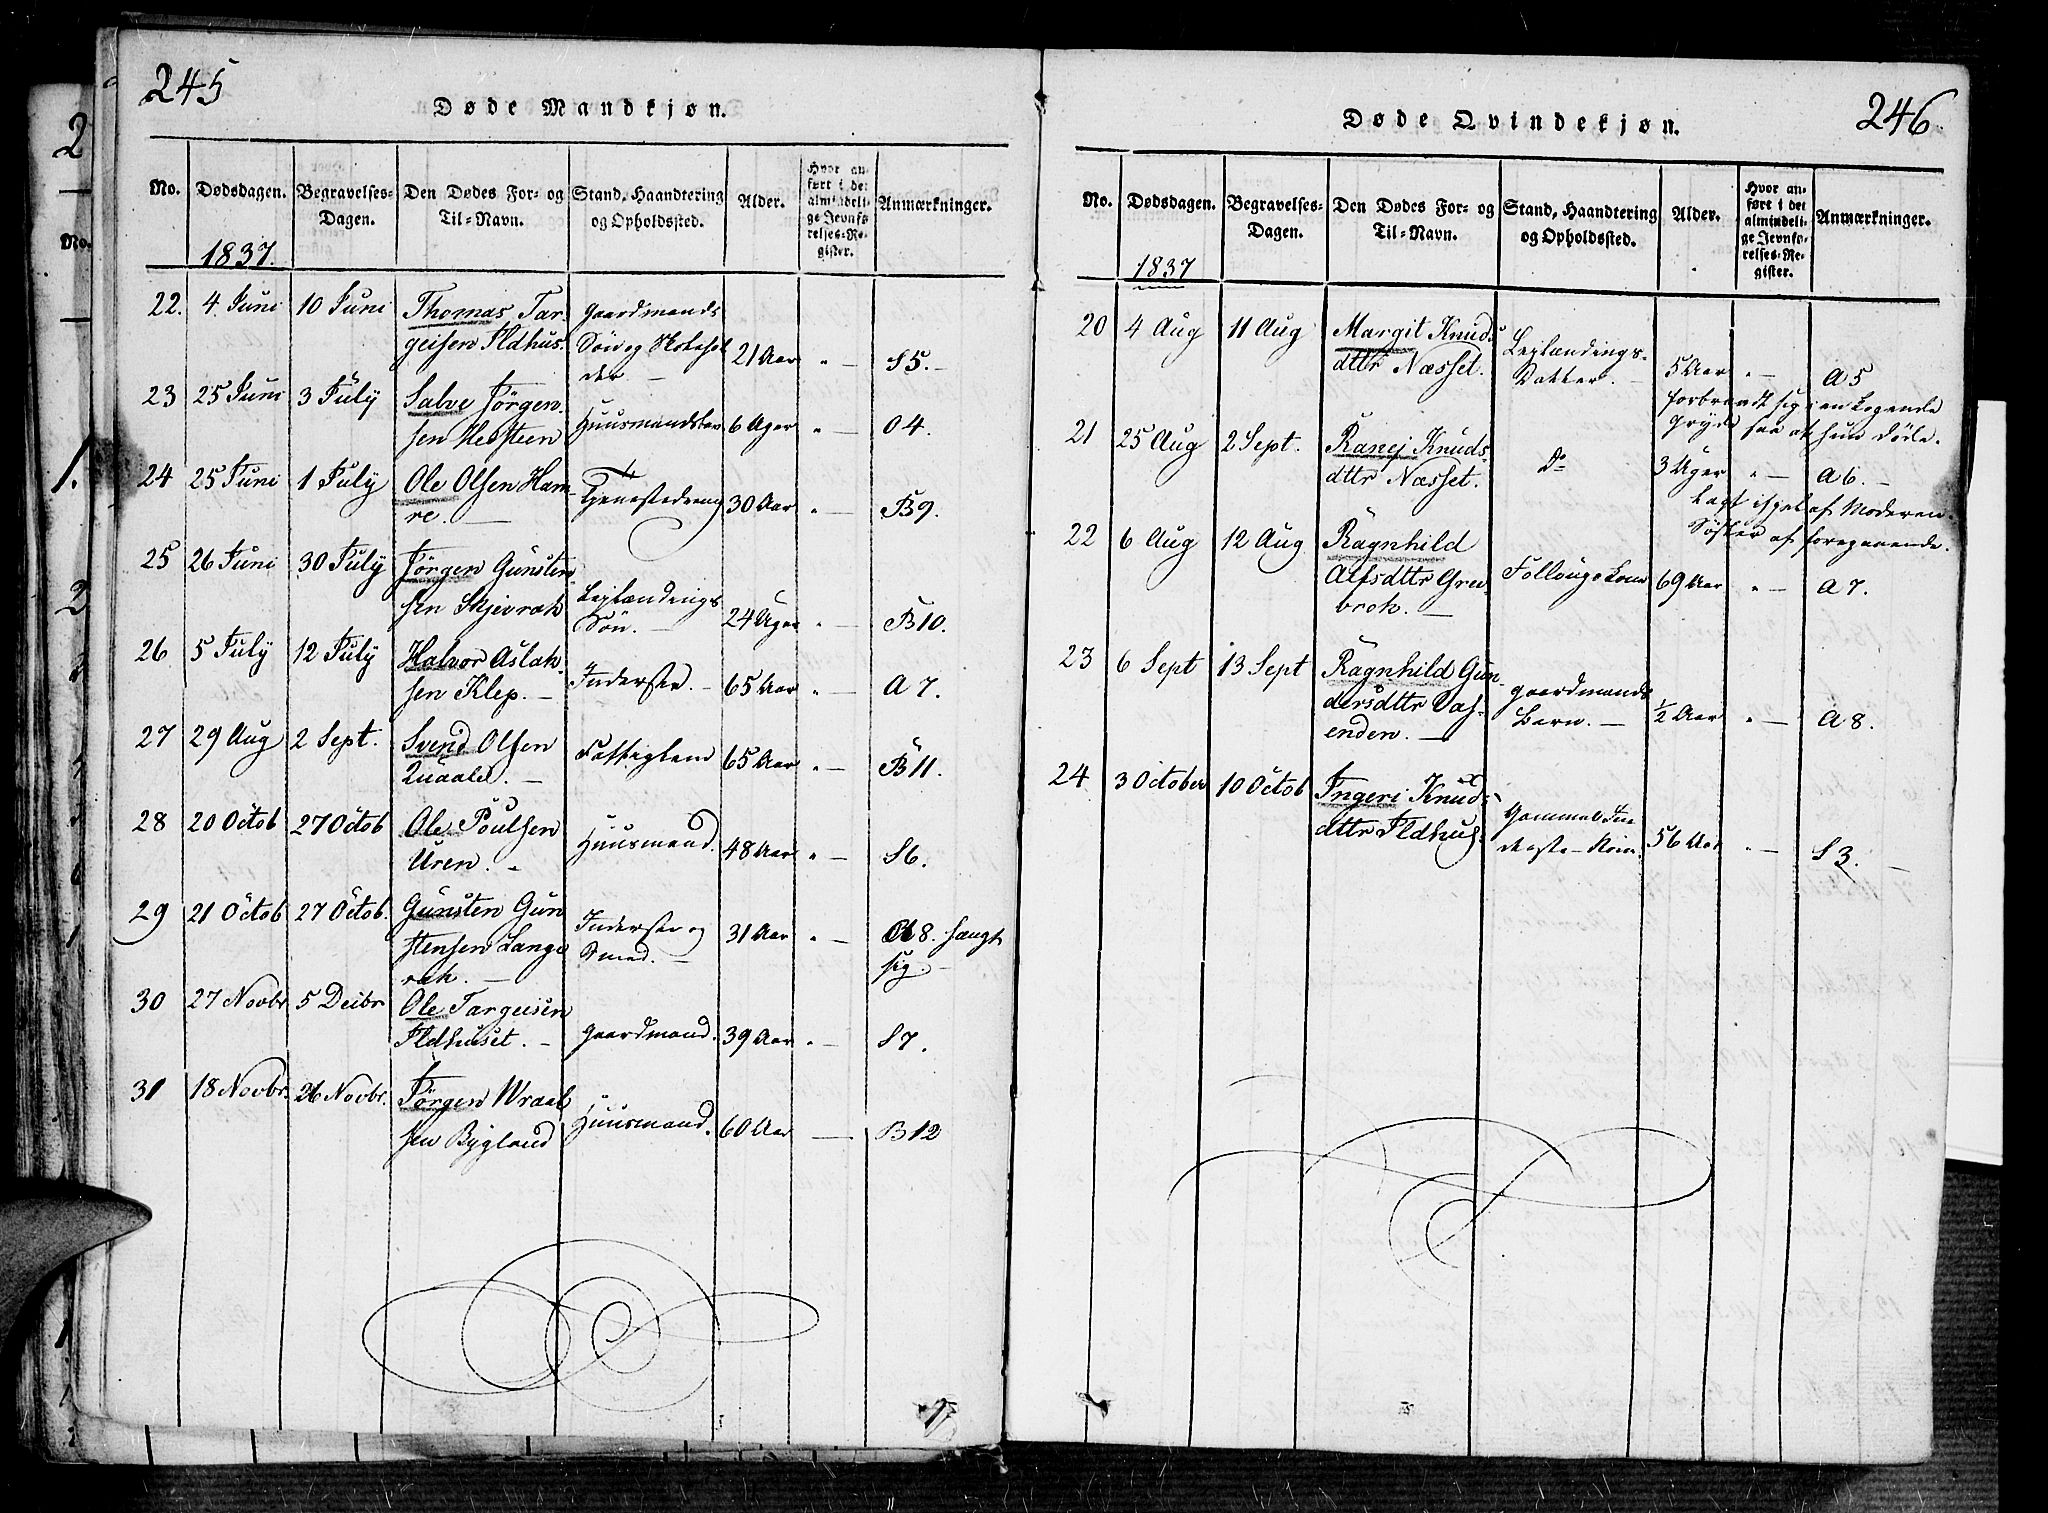 245
Døde Mandkjøn.
No. Dødsdagen. Begravelses-Dagen. Den Dødes For- og Til-Navn. Stand, Haandtering og Opholdssted. Alder. Hvor anført i det almindelige Jevnførelses-Register. Anmærkninger.
1837.
22. 4 Juni 10 Juni Thomas Tar- gaardmands
geisen Ildhus. Søn og 21 Aar " — S5. —
23 25 Juni 3 July Salve Jörgen-
sen Hersteen 6 Uger " — O4.
24 25 Juni 1 July Ole Olsen Ham-
re. — Tjenestedreng 30 Aar " — B9.
25 26 Juni 30 July Jörgen Gunsten-
sen Skjevrak Leylændings
Søn. — 24 Uger " — B10.
26 5 July 12 July Halvor Aslak-
sen Klep. — Inderste. — 65 Aar " — A7.
27 29 Aug 2 Sept. Svend Olsen
Quaale. — Fattiglem 65 Aar " — B11.
28 20 Octob 27 Octob Ole Poulsen
Uren. „ Huusmand. 48 Aar " — S6.
29 21 Octob 27 Octob. Gunsten Gun
stensen Lange Inderste og 31 Aar " — 8. hængt
rak. — Smed. — sig. —
30 27 Novbr 5 Deibr Ole Targeisen
Ildhuset. — gaardmand. 39 Aar " — S7.
31 18 Novbr. 26 Novbr. Jörgen Wraal
sen Bygland Huusmand. 60 Aar — B12
246
Døde Qvindekjøn.
No. Dødsdagen. Begravelses-Dagen. Den Dødes For- og Til-Navn. Stand, Haandtering og Opholdssted. Alder. Hvor anført i det almindelige Jevnførelses-Register. Anmærkninger.
1837
20 4 Aug 11 Aug Margit Knuds
dttr Næsset. Leylændings-
Datter. — 5 Aar " — A5
forbrendt sig i en kogende
gryde saa at hun døde.
21 25 Aug 2 Sept. Ranej Knuds-
dttr Næsset. Do 3 Uger " — A6. —
Lagt ihjel af Moderen.
Søster af foregaaende.
22 6 Aug 12 Aug Ragnhild
Alfsdttr Grei-
brok. — 69 Aar " — A7.
23 6 Sept 13 Sept Ragnhild Gun-
dersdttr Vas- gaardmands
enden. — Barn. — 1/2 Aar " — A8.
24 3 October 10 Octob Ingeri Knuds-
dttr Ildhus Gammel In-
derste-Kone. 56 Aar " — S3. —